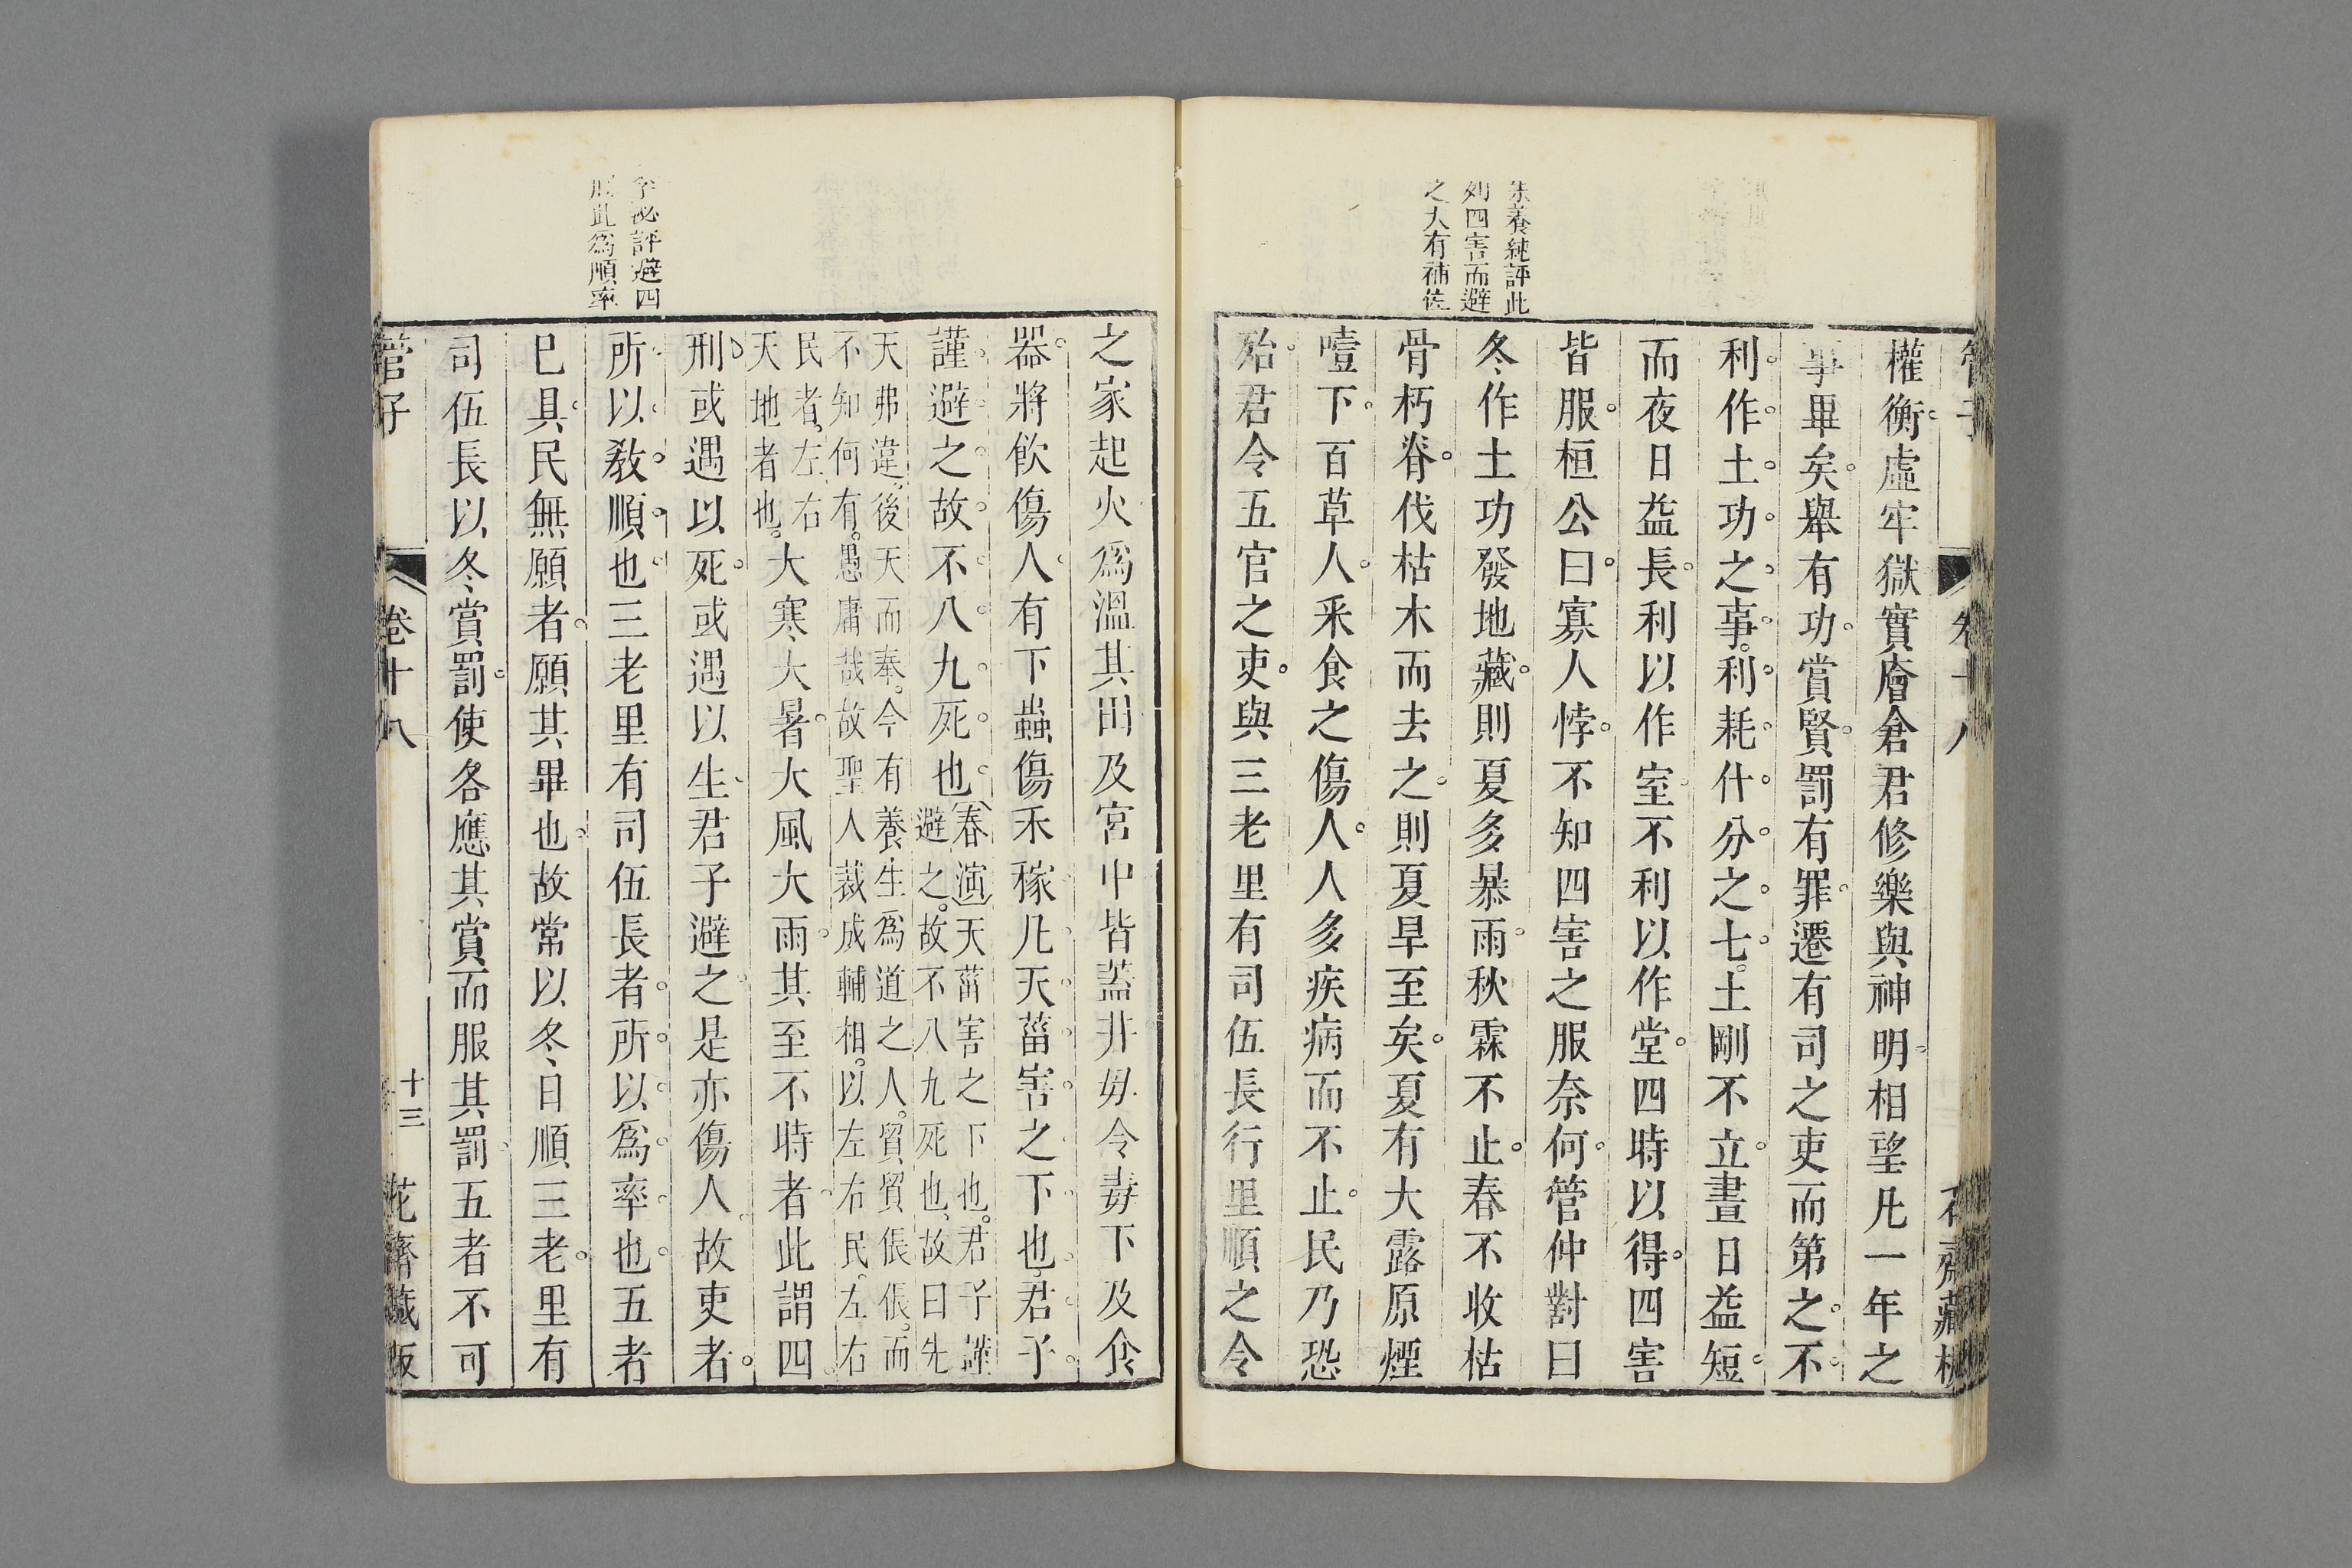 朱養純評此
列四害而避
之大有補佐
權衡虛牢獄實廥倉君修樂與神明相望凡一年之
事畢矣舉有功賞賢罰有罪遷有司之吏而第之不
利作土功之事利耗什分之七土剛不立晝日益短
而夜日益長利以作室不利以作堂四時以得四害
皆服桓公曰寡人悖不知四害之服奈何管仲對曰
冬作土功發地藏則夏多暴雨秋霖不止春不收枯
骨朽脊伐枯木而去之則夏旱至矣夏有大露原煙
噎下百草人采食之傷人人多疾病而不止民乃恐
殆君令五官之吏與三老里有司伍長行里順之令
之家起火爲溫其田及宮中皆蓋井毋令毒下及食
器將飮傷人有下蟲傷禾稼凡天菑害之下也君子
謹避之故不八九死也
春演天菑害之下也君子謹
避之故不八九死也故曰先
天弗違後天而奉今有養生爲道之人貿貿倀倀而
不知何有愚庸哉故聖人裁成輔相以左右民左右
民者左右
天地者也
大寒大暑大風大雨其至不時者此謂四
刑或遇以死或遇以生君子避之是亦傷人故吏者
所以敎順也三老里有司伍長者所以爲率也五者
已具民無願者願其畢也故常以冬日順三老里有
司伍長以冬賞罰使各應其賞而服其罰五者不可
評避四
此爲順率
管子
卷十八
十三
花齋藏版